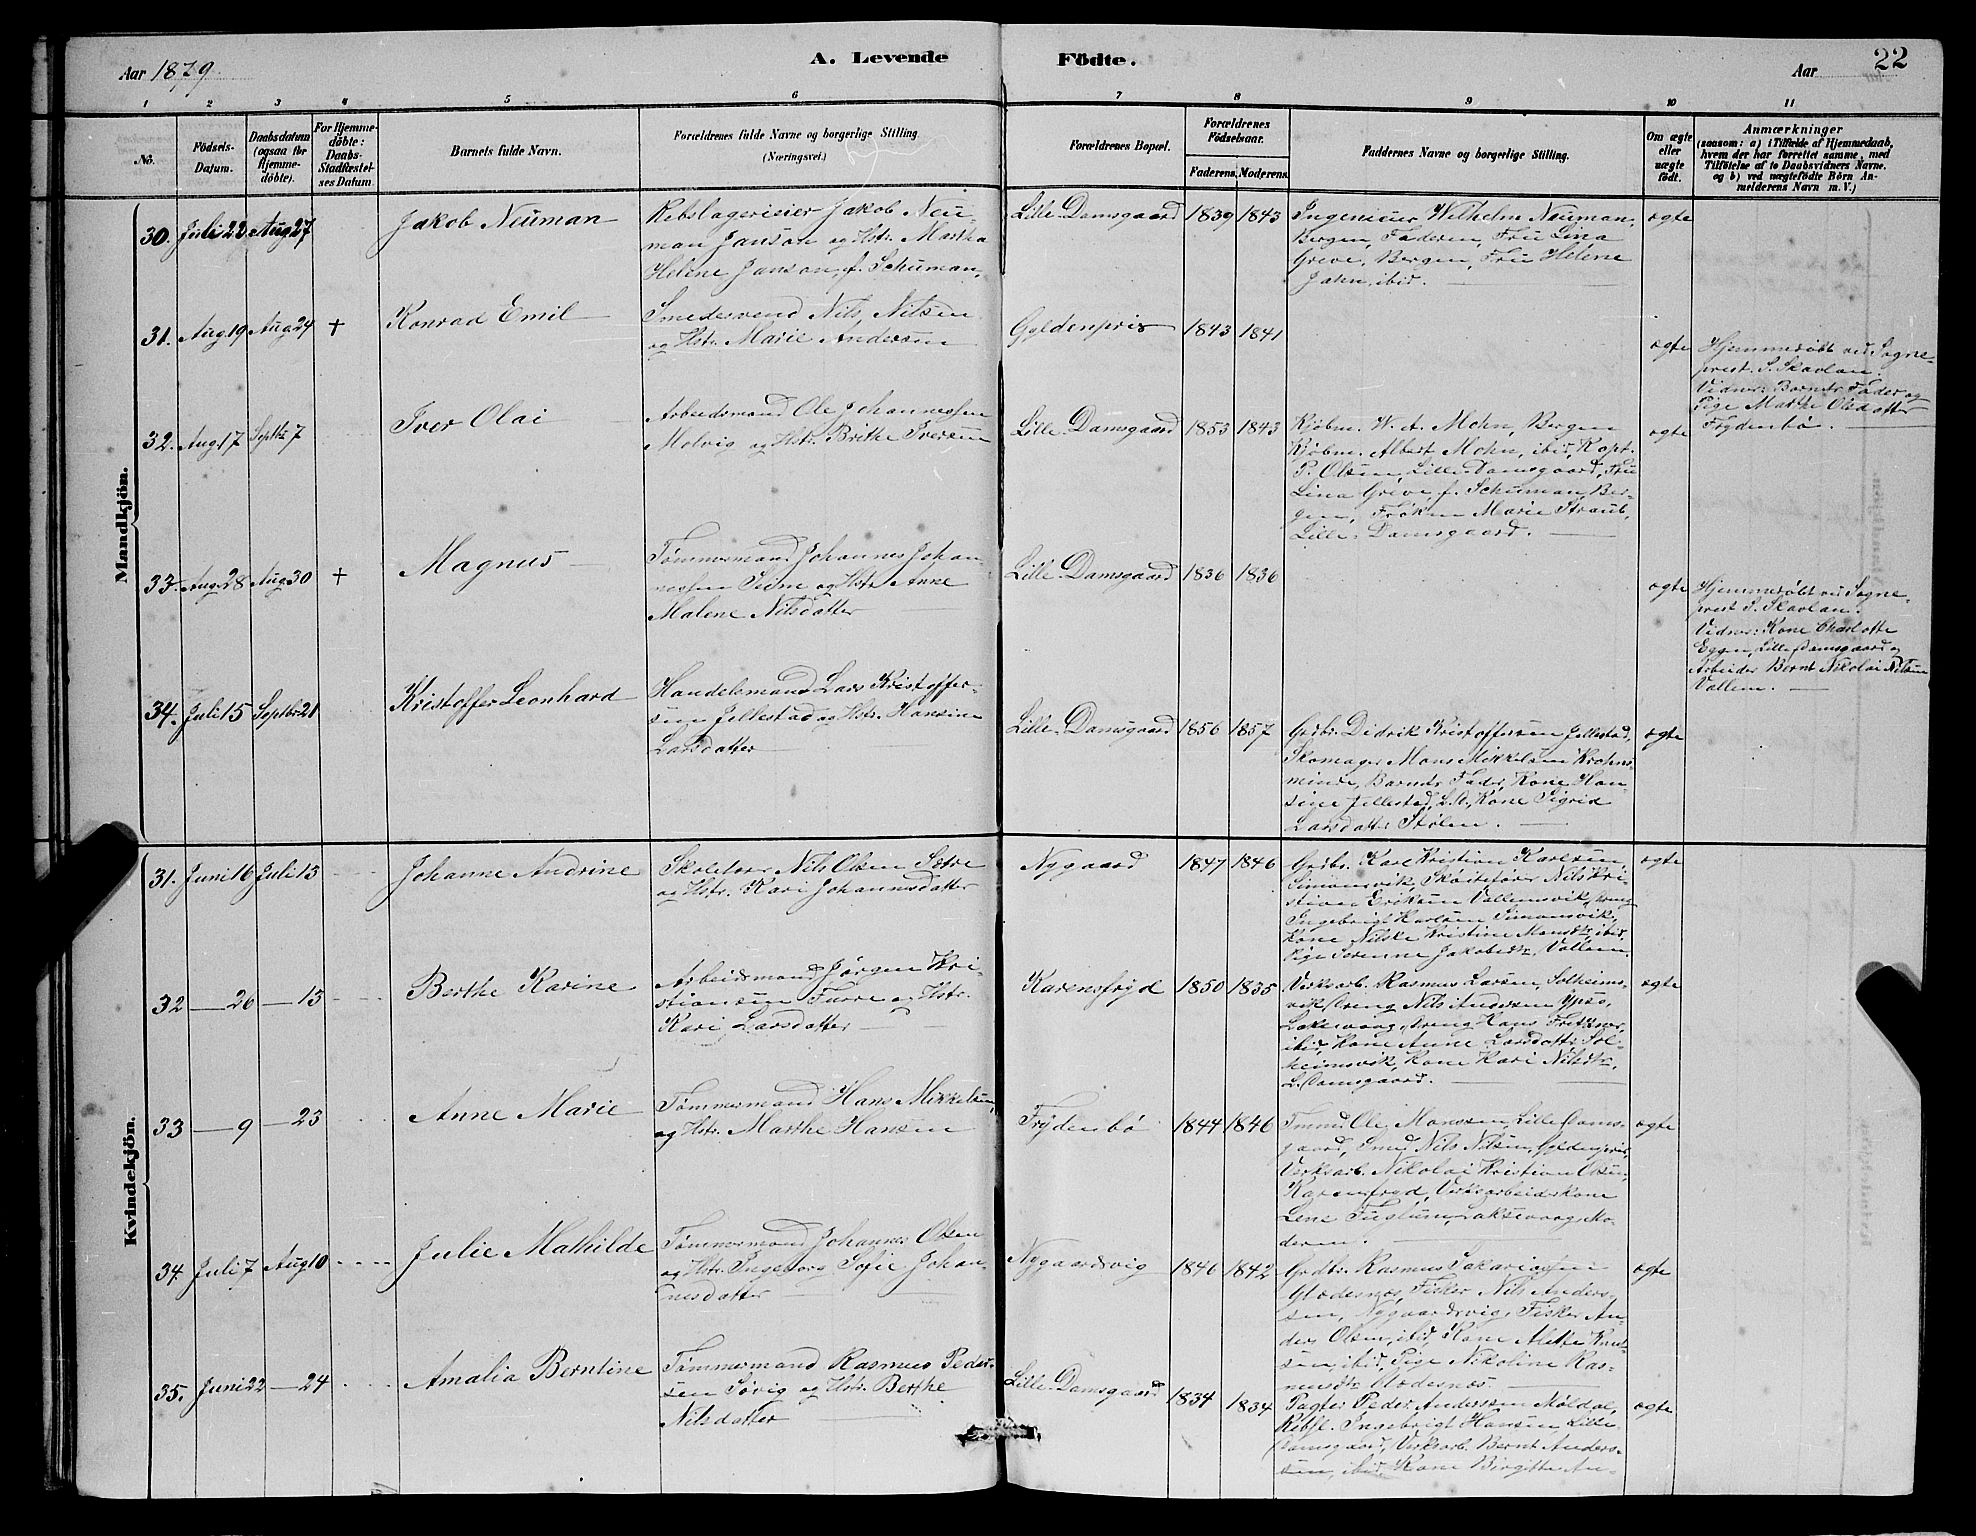 Aar 1879.
A. Levende
Födte.
Aar
22
1 2 3 4 5 6 7 8 9 10 11
No.
Födsels-
Datum.
Daabsdatum
(ogsaa for
Hjemme-
döbte).
For Hjemme-
döbte:
Daabs-
Stadfæstel-
ses Datum.
Barnets fulde Navn.
Forældrenes fulde Navne og borgerlige Stilling
(Næringsvei.)
Forældrenes Bopæl.
Forældrenes
Födselsaar.
Faderens. Moderens.
Faddernes Navne og borgerlige Stilling.
Om ægte
eller
uægte
födt.
Anmærkninger
(saasom: a) i Tilfælde af Hjemmedaab,
hvem der har forrettet samme, med
Tilföielse af to Daabsvidners Navne,
og b) ved uægtefödte Börn An-
melderens Navn m. V.)
Mandkjön.
30. Juli 22 Aug 27
Jakob Neuman
Rebslagerieier Jakob Neu-
man Janson og Hstr. Martha
Helene Janson, f. Schuman.
Lille Damsgaard 1839 1843
Ingenieur Wilhelm Neuman,
Bergen, Faderen, Fru Lina
Greve, Bergen, Fru Helene
Jahn, ibid.
ægte
31. Aug 19 Aug 24 +
Konrad Emil
Smedesvend Nils Nilsen
og Hstr. Marie Andersen
Gyldenpris 1843 1841
ægte
Hjemmedøbt ved Sogne-
prest S. Skavlan.
Vidner: Barnets Fader og
Pige Marthe Olsdatter
Frydenbö.
32. Aug 17 Septbr 7
Iver Olai
Arbeidsmand Ole Johannessen
Melvig og Hstr. Brithe Iversen
Lille Damsgaard 1853 1843
Kjöbm. W. A. Mohn, Bergen
Kjöbm. Albert Mohn, ibid, Kapt.
P. Olsen, Lille Damsgaard, Fru
Lina Greve, f. Schuman, Ber-
gen, Frøken Marie Straub,
Lille Damsgaard.
ægte
33. Aug 28 Aug 30 +
Magnus
Tømmermand Johannes Johan-
nessen og Hstr. Anne
Malene Nilsdatter
Lille Damsgaard 1836 1836
ægte
Hjemmedøbt ved Sogne-
prest S. Skavlan.
Vidner: Kone Charlotte
Lille Damsgaard og
Arbeider Bernt Nikolai Nilsen
Vallem.
34. Juli 15 Septbr 21
Kristoffer Leonhard
Handelsmand Lars Kristoffer-
sen Jellestad og Hstr. Hansine
Larsdatter
Lille Damsgaard 1856 1857
Grdbr. Didrik Kristoffersen Jellestad,
Skomager Mons Mikkelsen Krohns-
minde, Barnets Fader, Kone Han-
sine Jellestad, L. D., Kone Sigrid
Larsdatter Stölen.
ægte
Kvindekjön.
31. Juni 16 Juli 13
Johanne Andrine
Skolelærer Nils Olsen Sætre
og Hstr. Kari Johannesdatter
Nygaard 1847 1846
Grdbr. Karl Kristian Karlsen,
Simonsvik, Skøitefører Nils Kri-
stian Eriksen Vallemsvik, Dreng
Ingebrigt Karlsen Simonsvik,
Kone Nilske Kristine Monsdtr, ibid,
Pige Serenne Jakobsdtr, Vallem.
ægte
32 — 26 — 13
Berthe Karine
Arbeidsmand Jørgen Kri-
stiansen Farre og Hstr.
Kari Larsdatter
Karensfryd 1850 1835
Verksarb. Rasmus Larsen, Solheims-
vik, Dreng Nils Andersen Ypsø,
Laksevaag, Dreng Hans Fritzner,
ibid, Kone Anne Larsdatter Sol-
heimsvik, Kone Kari Nilsdtr,
L. Damsgaard.
ægte
33 — 9 — 23
Anne Marie
Tømmermand Hans Mikkelsen
og Hstr. Marthe Hansen
Frydenbö 1844 1846
Tmmd. Ole Monssen, Lille Dams-
gaard, Smed Nils Nilsen, Gyldenpris,
Verksarb. Nikolai Kristian Olsen,
Karensfryd, Verksarbeiderkone
Lene Fuglum, Laksevaag, Mo-
deren.
ægte
34. Juli 7 Aug 10
Julie Mathilde
Tømmermand Johannes Olsen
og Hstr. Ingeborg Sofie Johan-
nesdatter
Nygaardsvig 1846 1842
Grdbr. Rasmus Sakariassen
Glødesnes, Fisker Nils Anders-
sen, Nygaardsvig, Fisker An-
ders Olsen, ibid, Kone Alette Knut-
sen, ibid, Pige Nikoline Ras-
musdtr Glødesnes.
ægte
35. Juni 22 — 24
Amalia Berntine
Tømmermand Rasmus Peder-
sen Sørvig og Hstr. Berthe
Nilsdatter
Lille Damsgaard 1834 1834
Pagter Peder Anderssen Møldal,
Rebsl. Ingebrigt Hansen Lille
Damsgaard, Verksarb. Bernt Anders-
sen, ibid, Kone Birgitte An-
ægte